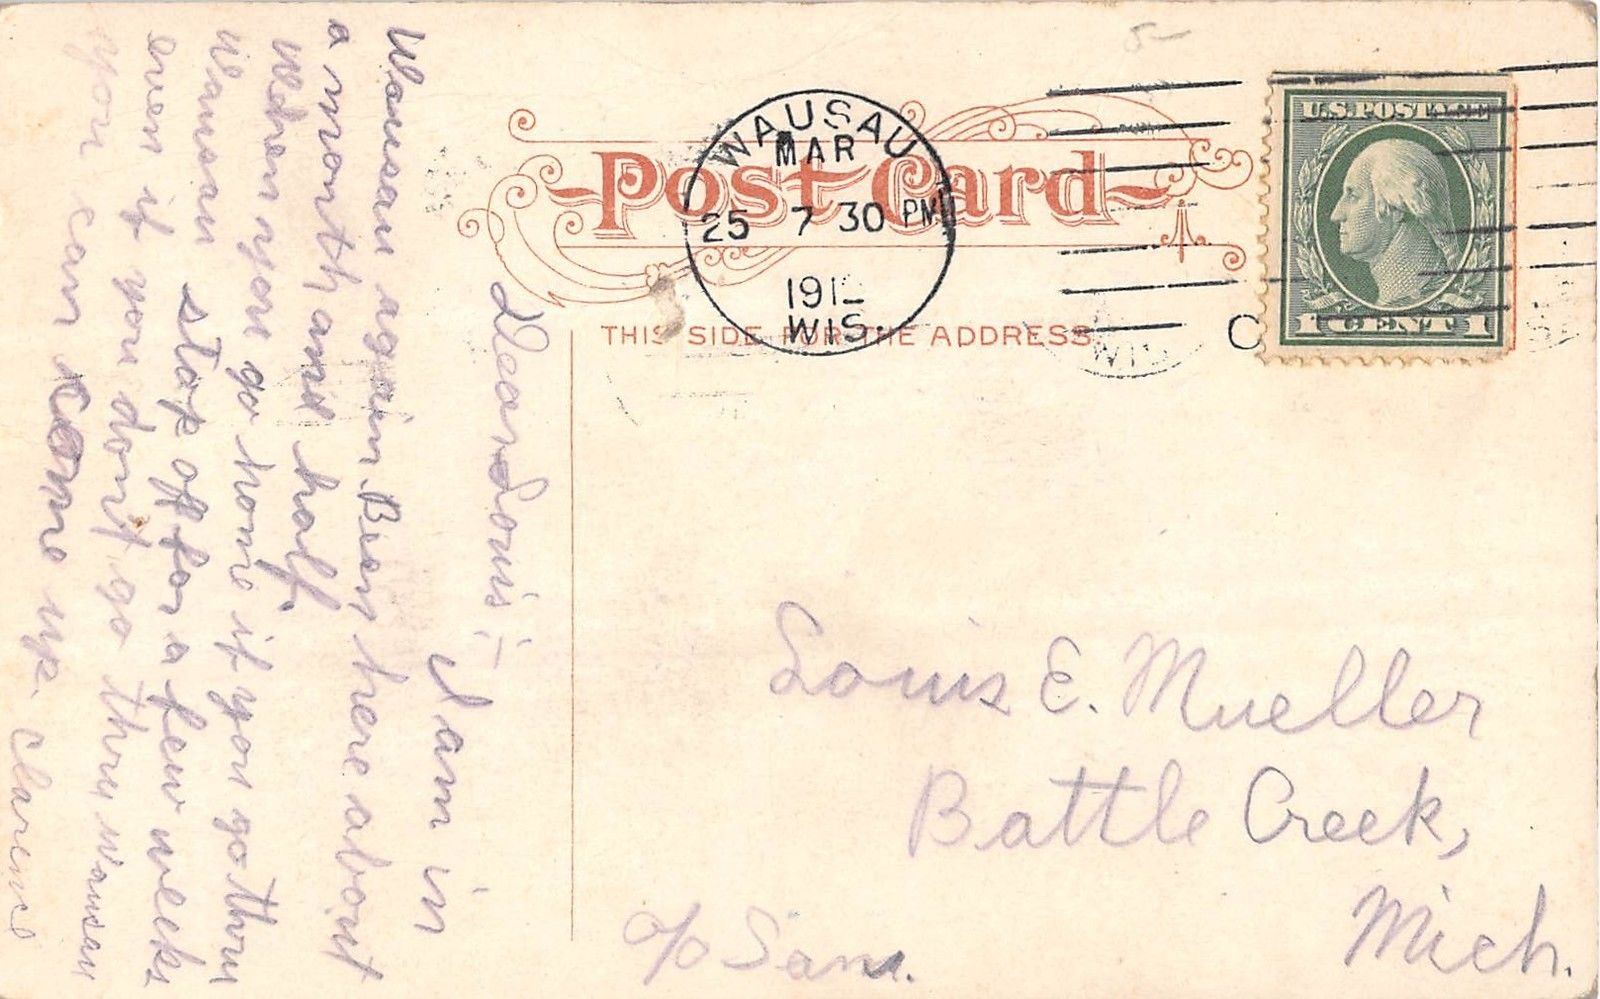 5-
Post Card
THIS SIDE FOR THE ADDRESS
WAUSAU
MAR
25 7 30 PM
191
WIS.
U.S. POSTAGE
1 CENT 1
WIS
Dear Louis:-
I am in
Wausau again. Been here about
a month and half.
When you go home if you go thru
Wausau stop off for a few weeks
even if you don't go thru Wausau
you can come up. Clarence
Louis E. Mueller
Battle Creek,
Mich.
c/o San.